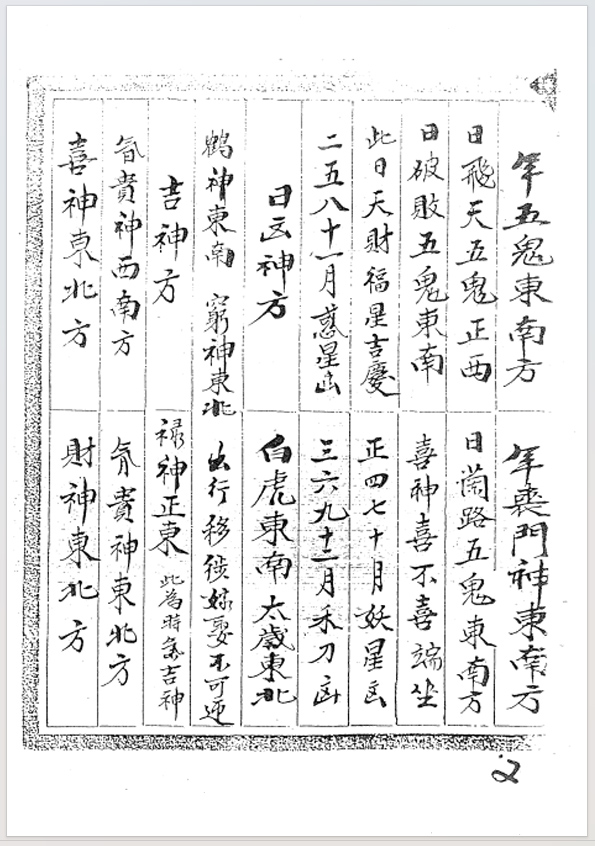 年五鬼東南方
年喪門神東南方
日飛天五鬼正西
日攔路五鬼東南方
日破敗五鬼東南
喜神喜不喜端坐
此日天財福星吉慶
正四七十月妖星凶
二五八十一月惑星凶
三六九十二月禾刀凶
日凶神方
白虎東南 太歲東北
鶴神東南 窮神東北
出行移徙嫁娶不可逆
吉神方
祿神正東 此為時吉神
貴神西南方
貴神東北方
喜神東北方
財神東北方
2